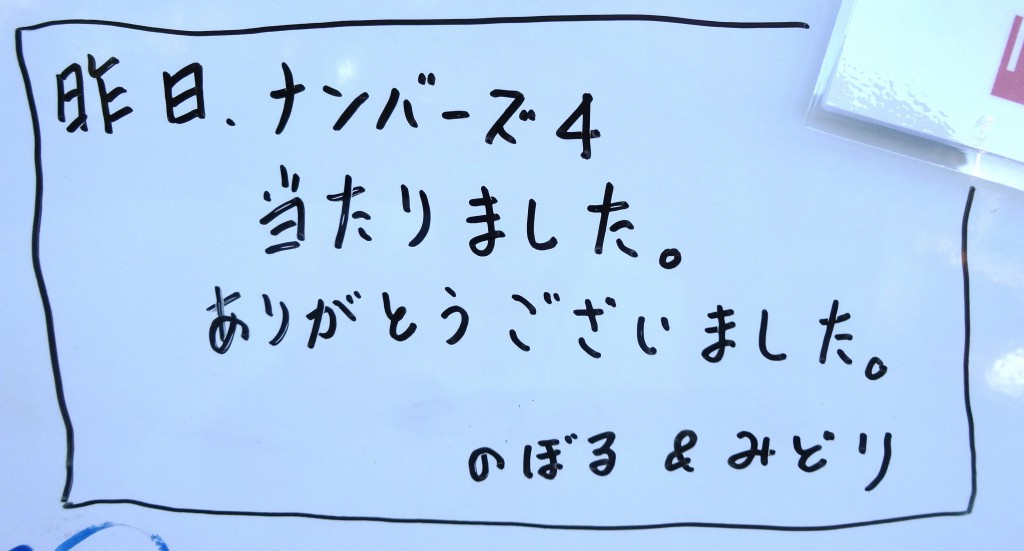 昨日、ナンバーズ4
当たりました。
ありがとうございました。
のぼる & みどり